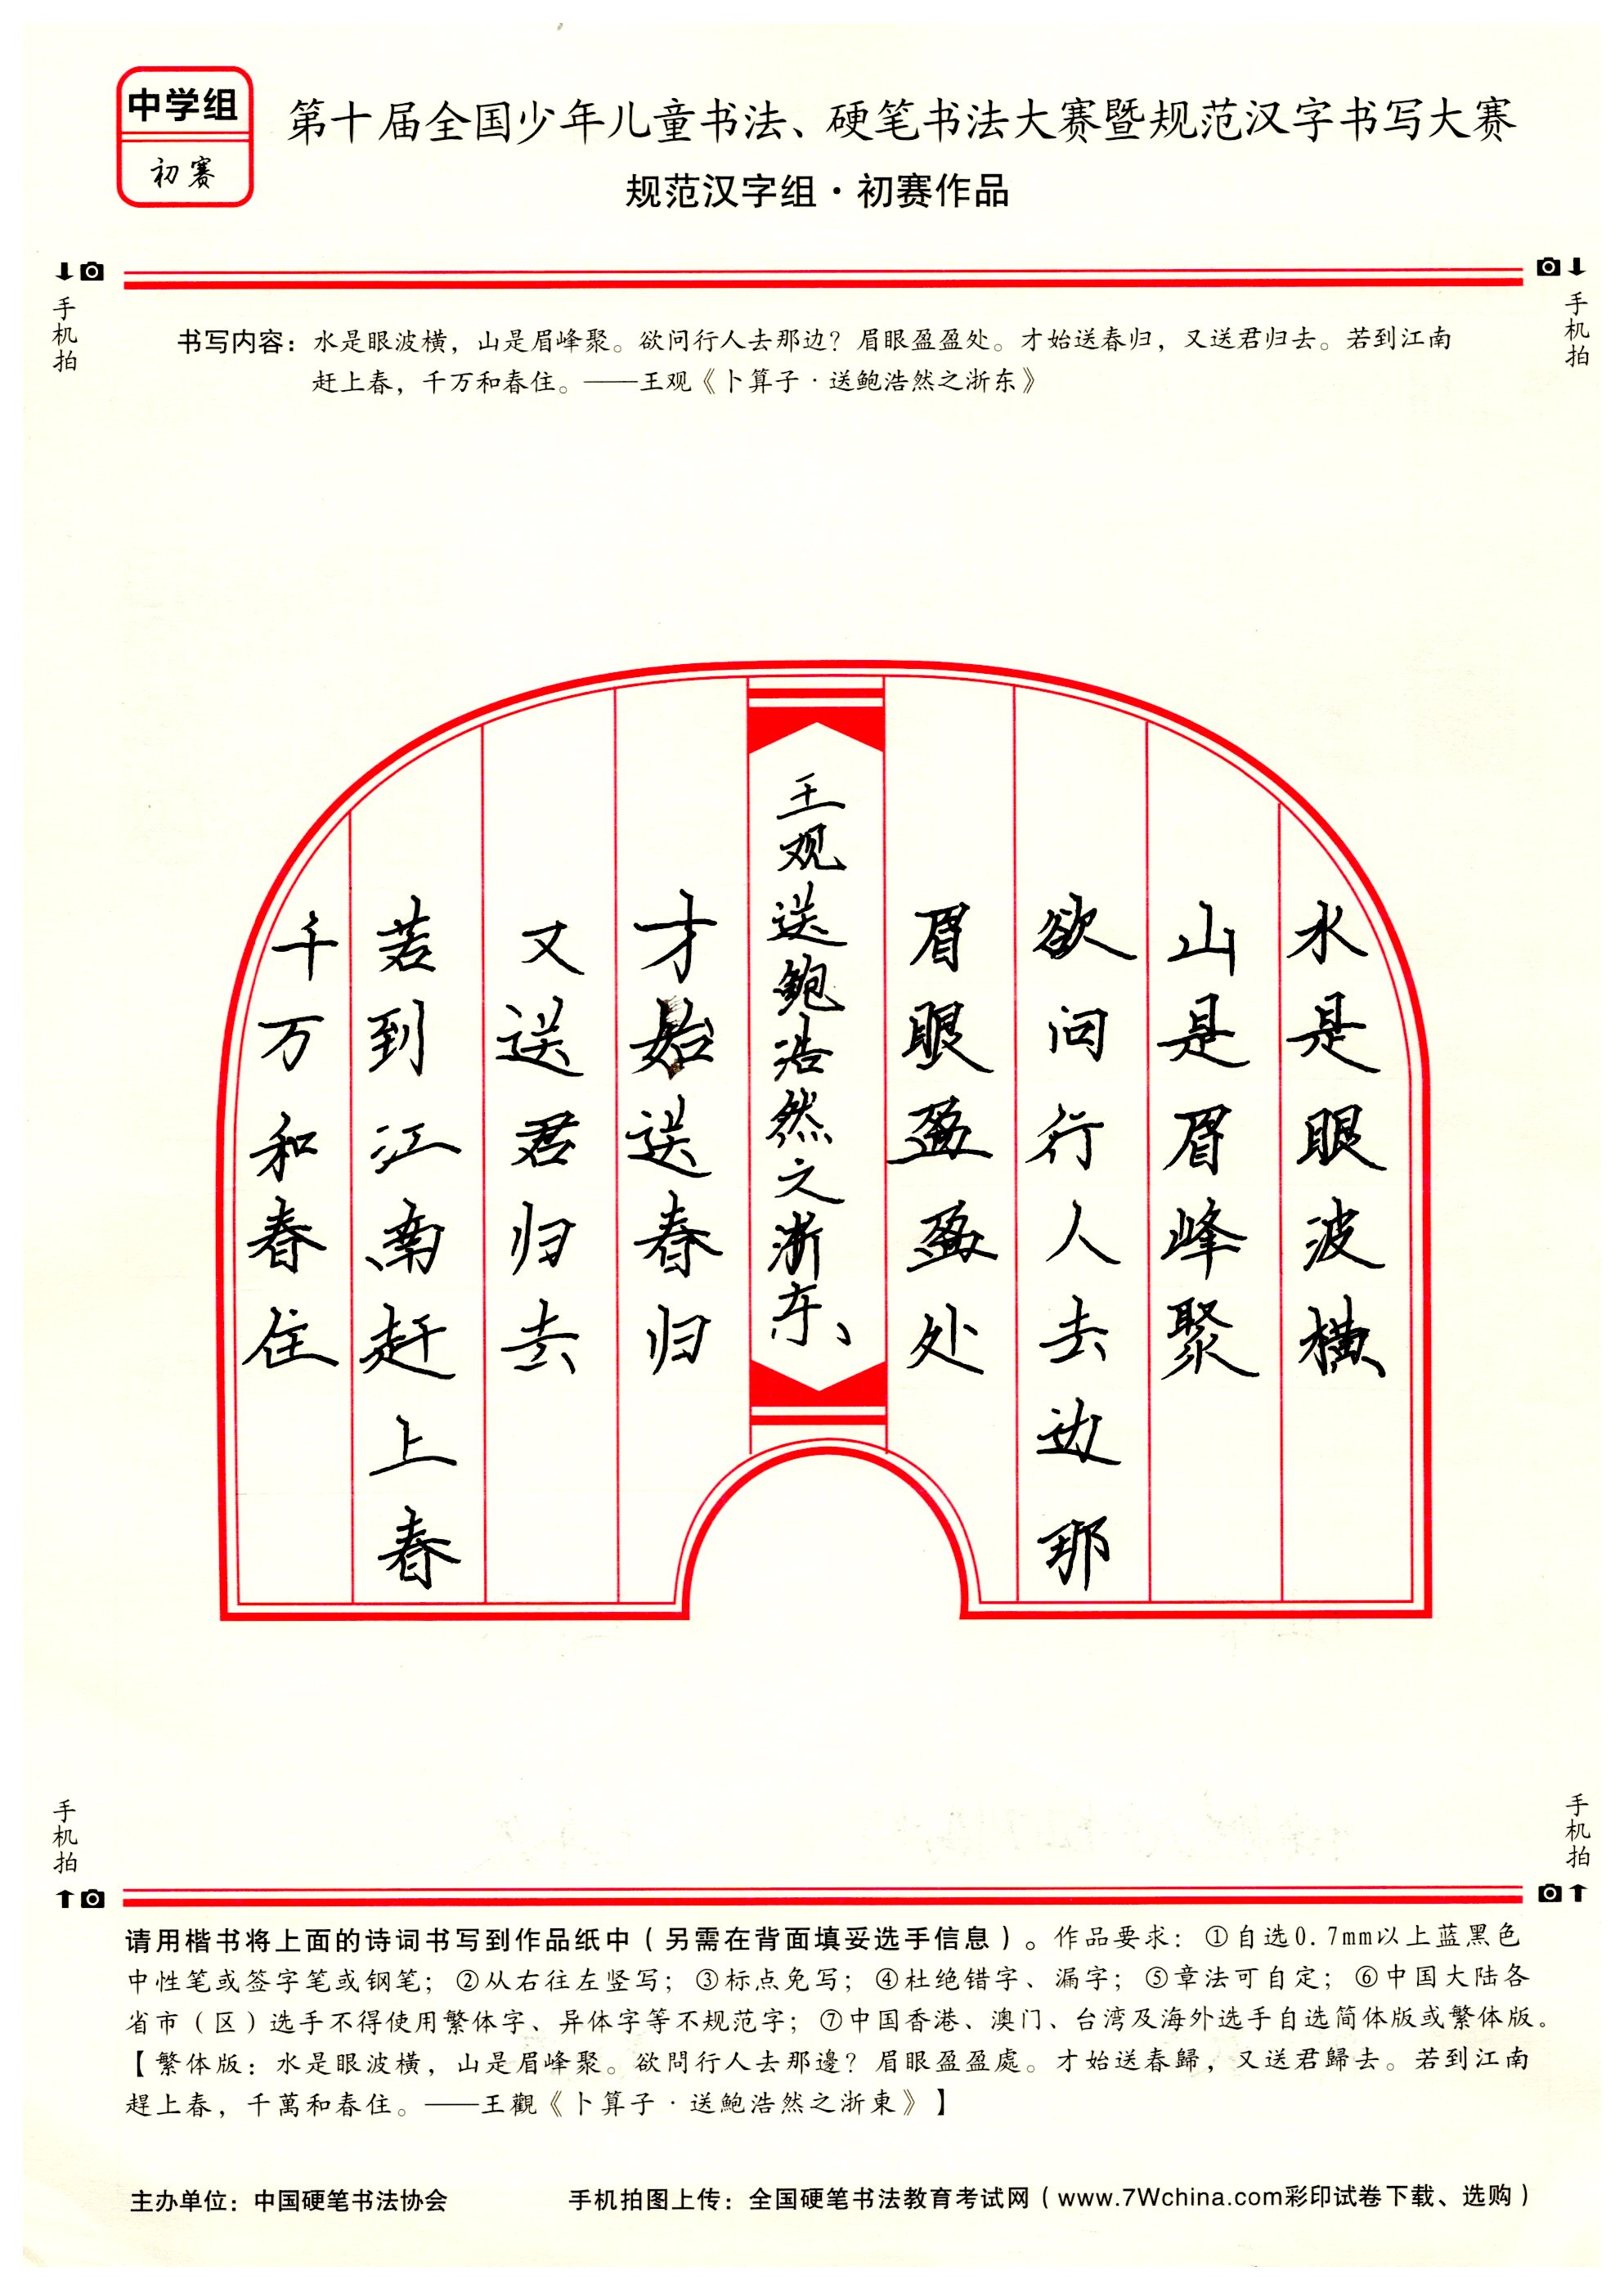 中学组
初赛
第十届全国少年儿童书法、硬笔书法大赛暨规范汉字书写大赛
规范汉字组·初赛作品
手机拍
手机拍
书写内容：水是眼波横，山是眉峰聚。欲问行人去那边？眉眼盈盈处。才始送春归，又送君归去。若到江南
赶上春，千万和春住。——王观《卜算子·送鲍浩然之浙东》
水是眼波横
山是眉峰聚
欲问行人去边那
眉眼盈盈处
王观送鲍浩然之浙东、
才始送春归
又送君归去
若到江南赶上春
千万和春住
手机拍
手机拍
请用楷书将上面的诗词书写到作品纸中（另需在背面填妥选手信息）。作品要求：①自选0.7mm以上蓝黑色
中性笔或签字笔或钢笔；②从右往左竖写；③标点免写；④杜绝错字、漏字；⑤章法可自定；⑥中国大陆各
省市（区）选手不得使用繁体字、异体字等不规范字；⑦中国香港、澳门、台湾及海外选手自选简体版或繁体版。
【繁体版：水是眼波橫，山是眉峰聚。欲問行人去那邊？眉眼盈盈處。才始送春歸，又送君歸去。若到江南
趕上春，千萬和春住。——王觀《卜算子·送鮑浩然之浙東》】
主办单位：中国硬笔书法协会
手机拍图上传：全国硬笔书法教育考试网（www.7Wchina.com彩印试卷下载、选购）